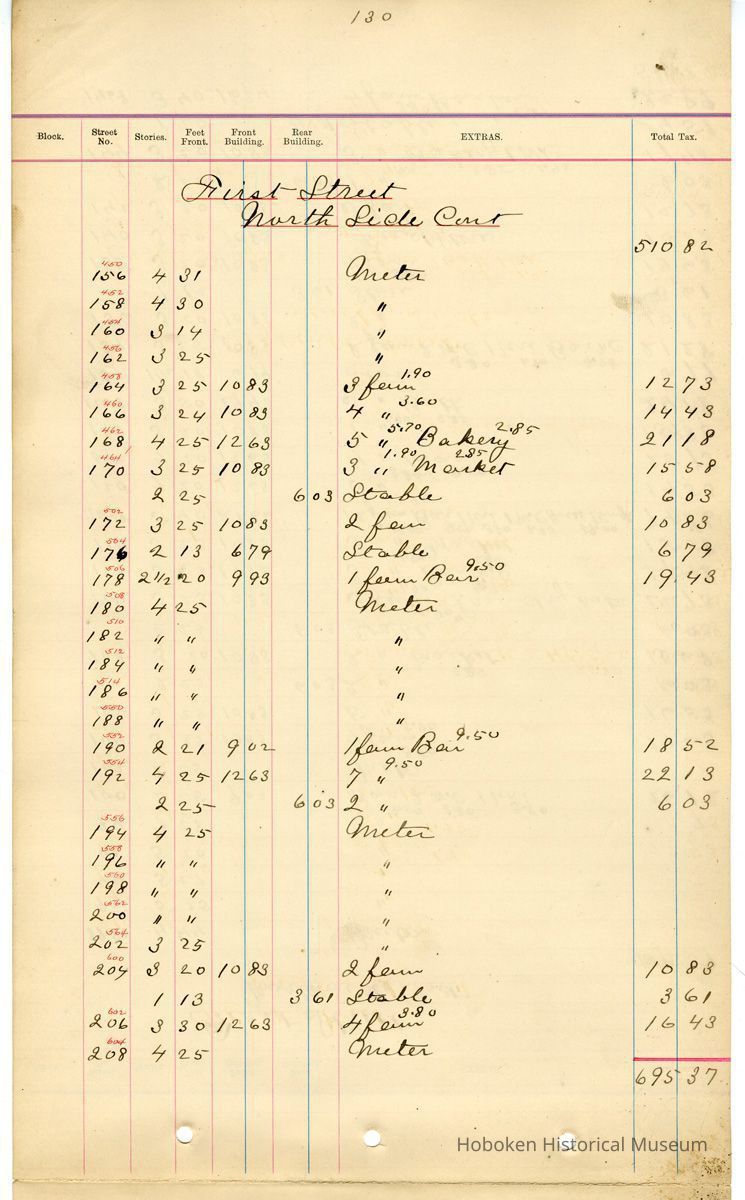 130
Block. Street No. Stories. Feet Front. Front Building. Rear Building. EXTRAS. Total Tax.
First Street
North Side Cont
510 82
450
156 4 31 Meter
452
158 4 30 "
454
160 3 14 "
456
162 3 25 "
458
164 3 25 10 83 3 fam 1.90 12 73
460
166 3 24 10 83 4 " 3.60 14 43
462
168 4 25 12 63 5 " 5.70 Bakery 2.85 21 18
464
170 3 25 10 83 3 " 1.90 Market 2.85 15 58
2 25 6 03 Stable 6 03
502
172 3 25 10 83 2 fam 10 83
504
176 2 13 6 79 Stable 6 79
506
178 2 1/2 20 9 93 1 fam Bar 9.50 19 43
508
180 4 25 Meter
510
182 " " "
512
184 " " "
514
186 " " "
550
188 " " "
552
190 2 21 9 02 1 fam Bar 9.50 18 52
554
192 4 25 12 63 7 " 9.50 22 13
2 25 6 03 2 " 6 03
556
194 4 25 Meter
558
196 " " "
560
198 " " "
562
200 " " "
564
202 3 25 "
600
204 3 20 10 83 2 fam 10 83
1 13 3 61 Stable 3 61
602
206 3 30 12 63 4 fam 3.80 16 43
604
208 4 25 Meter
695 37
Hoboken Historical Museum